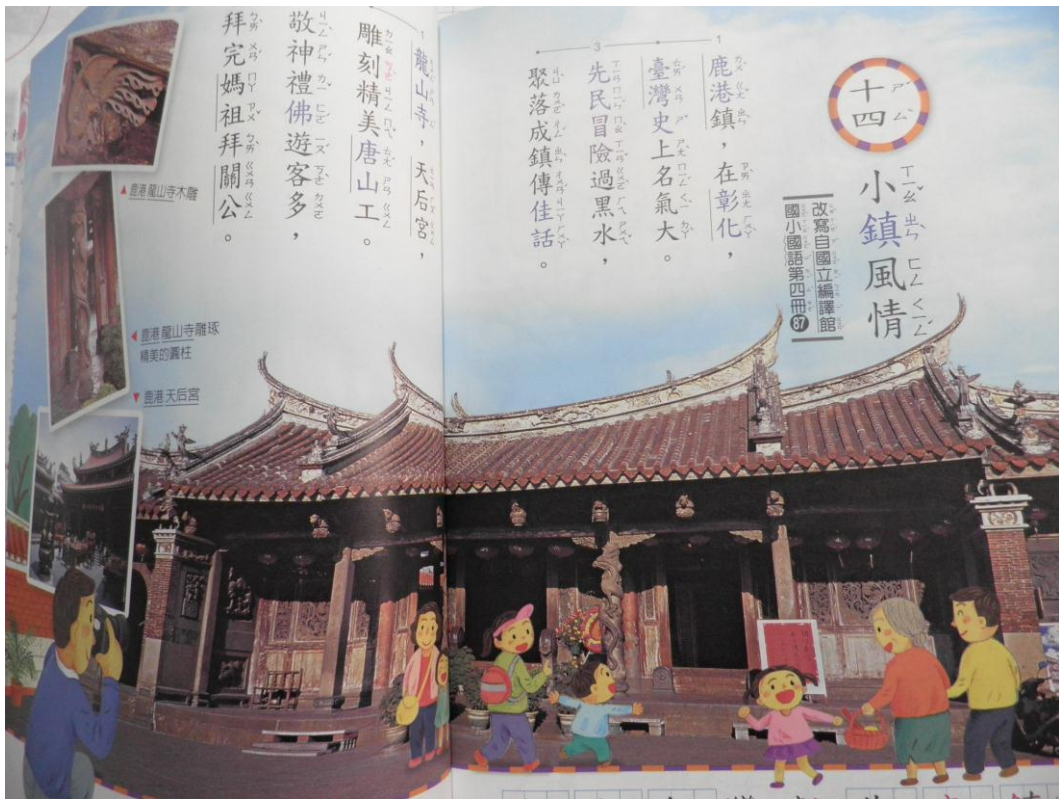 十四
小鎮風情
改寫自國立編譯館
國小國語第四冊87
1
鹿港鎮，在彰化，
臺灣史上名氣大。
3
先民冒險過黑水，
聚落成鎮傳佳話。
1
龍山寺，天后宮，
雕刻精美唐山工。
敬神禮佛遊客多，
拜完媽祖拜關公。
鹿港龍山寺木雕
鹿港龍山寺雕琢
精美的圓柱
鹿港天后宮